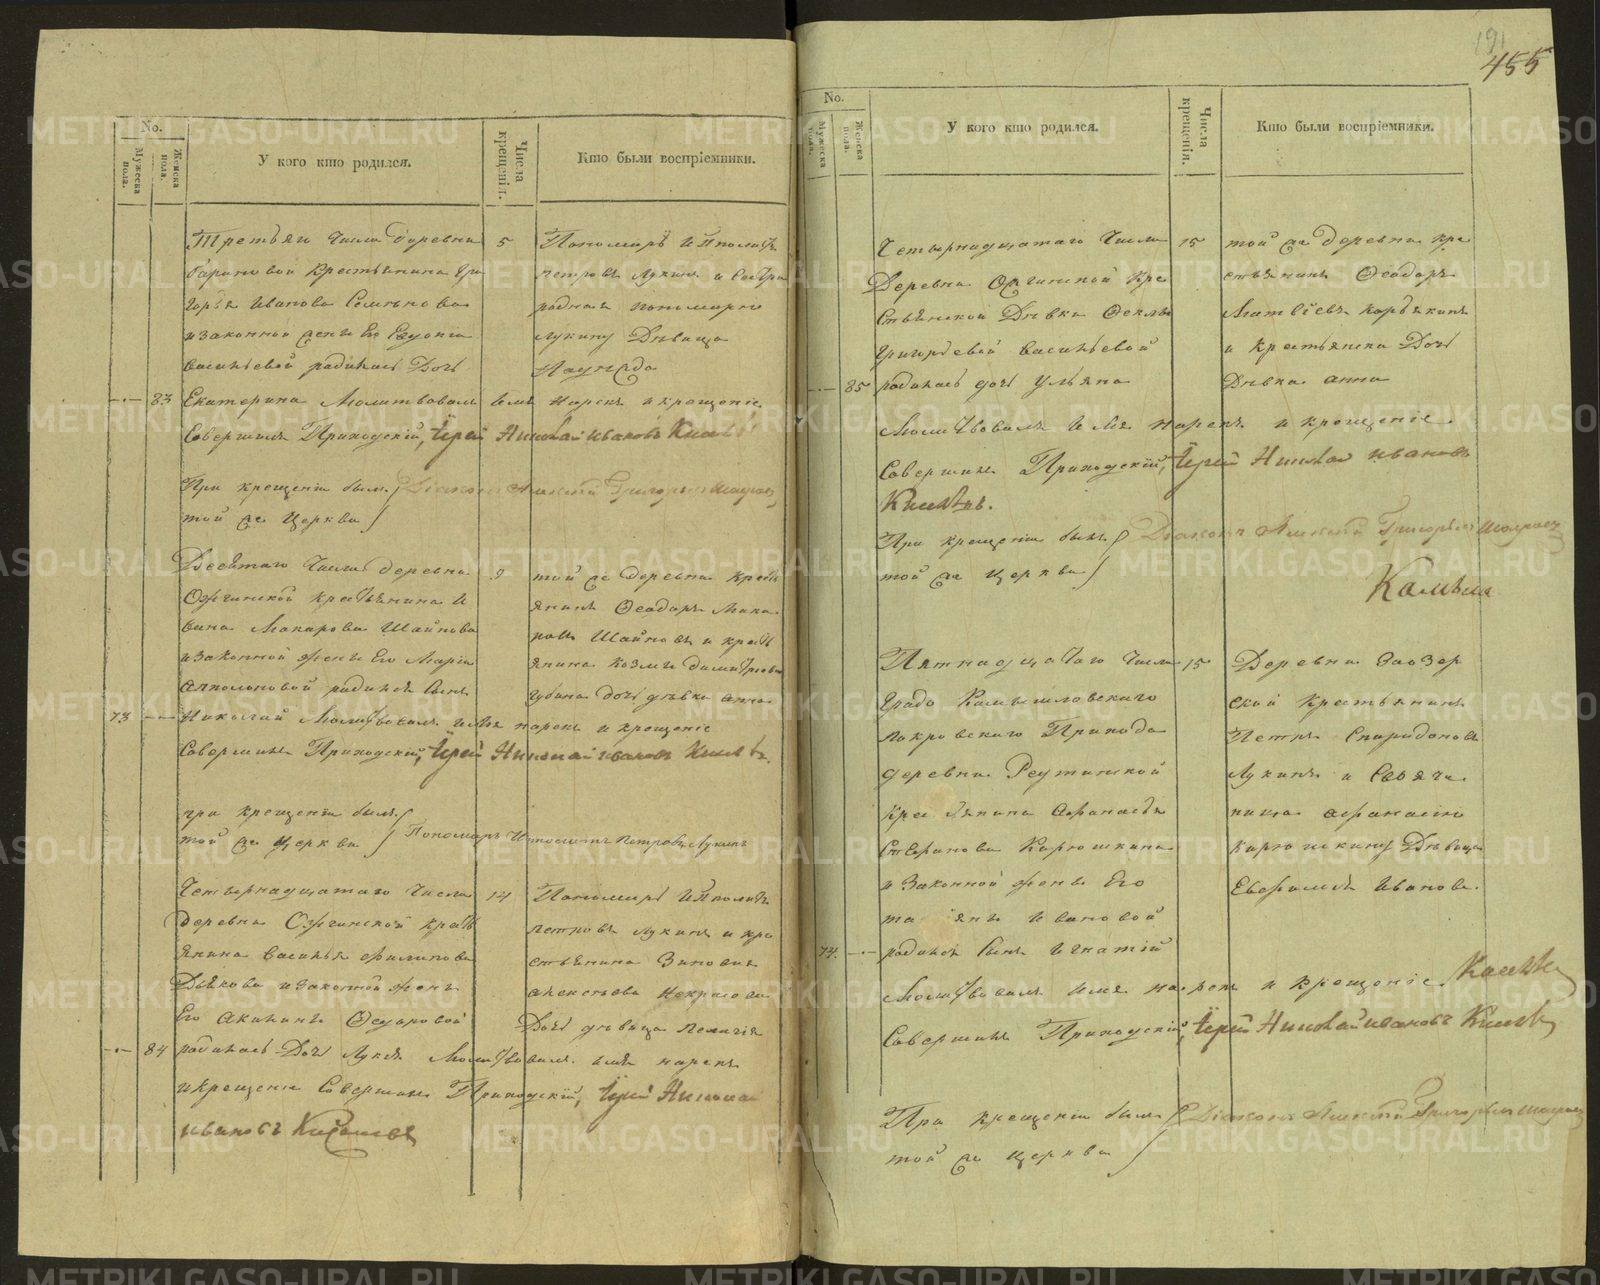 No.
Мужеска пола.
Женска пола.
У кого кто родился.
Числа крещенія.
Кто были воспріемники.
Третьяго числа деревни
Крестьянина Гри
горья Иванова
и законной жены Его Евдокіи
Васильевой родилась Дочь
83 Екатерина Молитвовалъ имя Нарекъ и крещеніе
Совершилъ Приходскій, Іерей Николай Ивановъ
5
Пономарь Ипполитъ
Петровъ Лукинъ и Сестра
родная пономарю
Лукину Дѣвица
При крещеніи былъ Діаконъ Алексій Григорьевъ
той же Церкви
Девятаго Числа деревни
Ожгинской крестьянина И
вана Макарова Шайнова
и законной жены Его Маріи
родился Сынъ
73 Николай Молитвовалъ имя нарекъ и крещеніе
Совершилъ Приходскій, Іерей Николай Ивановъ
9
той же деревни крест
янинъ Ѳеодоръ Мака
ровъ Шайновъ и крест
янина Козмы Димитріева
Губина дочь дѣвка Анна
при крещеніи былъ
той же Церкви Пономарь Ипполитъ Петровъ Лукинъ
Четырнадцатаго Числа
деревни Ожгинской крест
янина Василья Филипова
Дьякова и законной жены
Его Акилины Ѳедоровой
84 родилась Дочь Молитвовалъ имя нарекъ
и крещеніе Совершилъ Приходскій, Іерей Николай
Ивановъ
14
Пономарь Ипполитъ
Петровъ Лукинъ и кре
стьянина Зиновія
Алексѣева Некрасова
Дочь дѣвица Пелагія
455
No.
Мужеска пола.
Женска пола.
У кого кто родился.
Числа крещенія.
Кто были воспріемники.
Четырнадцатаго Числа
Деревни Ожгинской Кре
стьянской Дѣвки Ѳеклы
Григорьевой Васильевой
85 родилась дочь Ульяна
Молитвовалъ Имя нарекъ и крещеніе
Совершилъ Приходскій, Іерей Николай Ивановъ
15
той же деревни кре
стьянинъ Ѳеодоръ
Матвѣевъ
и крестьянки Дочь
Дѣвка Анна
При крещеніи былъ Діаконъ Алексій Григорьевъ
той же Церкви
Пятнадцатаго Числа
Града Камышловскаго
Покровскаго Прихода
деревни Реутинской
Крестьянина Афанасья
Стефанова Карюшкина
и Законной жены Его
Татьяны Ивановой
74. родился Сынъ Игнатій
Молитвовалъ имя нарекъ и крещеніе
Совершилъ Приходскій, Іерей Николай Ивановъ
15
Деревни Заозер
ской Крестьянинъ
Петръ Спиридоновъ
Лукинъ и Своячи
ница Афанасію
Карюшкину Дѣвица
Евфимія Иванова.
При крещеніи былъ Діаконъ Алексій Григорьевъ
той же Церкви
METRIKI.GASO-URAL.RU